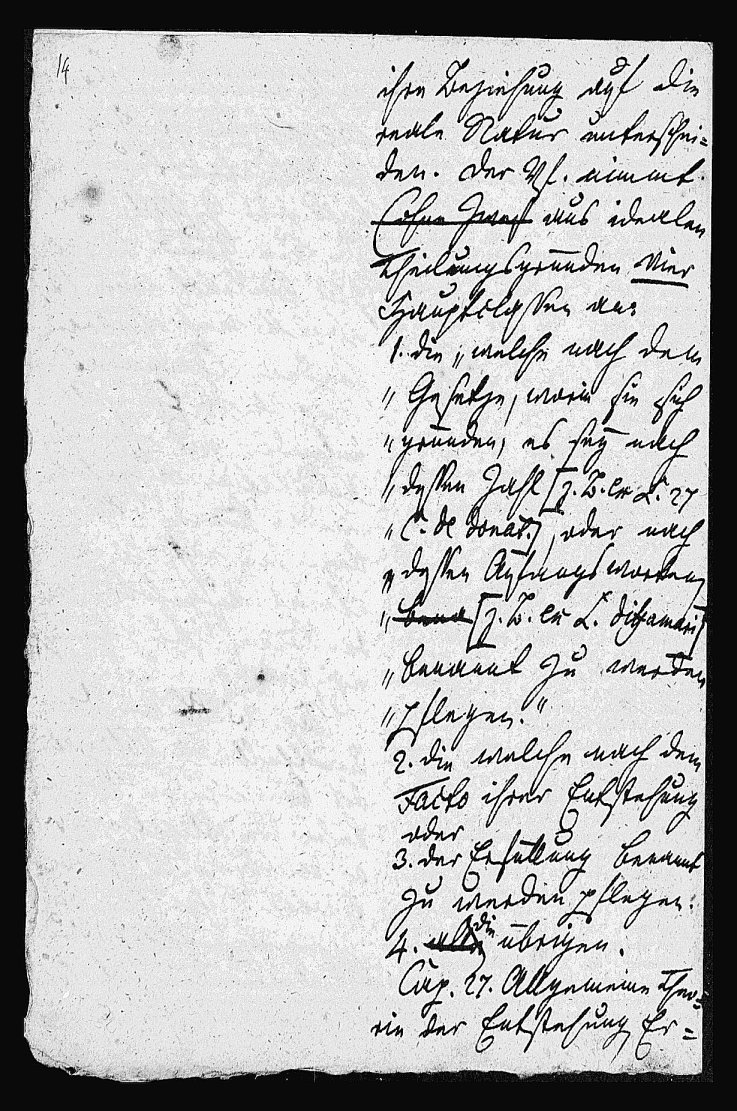 14
ihre Beziehung auf die
reale Natur unterschei=
den. Der Vf. nimmt
(ohne Zweifel aus idealen
Theilungsgründen vier
Hauptclassen an:
1. die „welche nach dem
„Gesetze, worin sie sich
„gründen, es sey nach
„dessen Zahl [z. B. ex L. 27
„C. de donat.], oder nach
„dessen Anfangsworten,
„bena [z. B. ex L. diffamari]
„benannt zu werden
„pflegen.“
2. die welche nach dem
Facto ihrer Entstehung
oder
3. der Erfüllung benannt
zu werden pflegen.
4. alle die übrigen.
Cap. 27. Allgemeine Theo=
rie der Entstehung, Er=